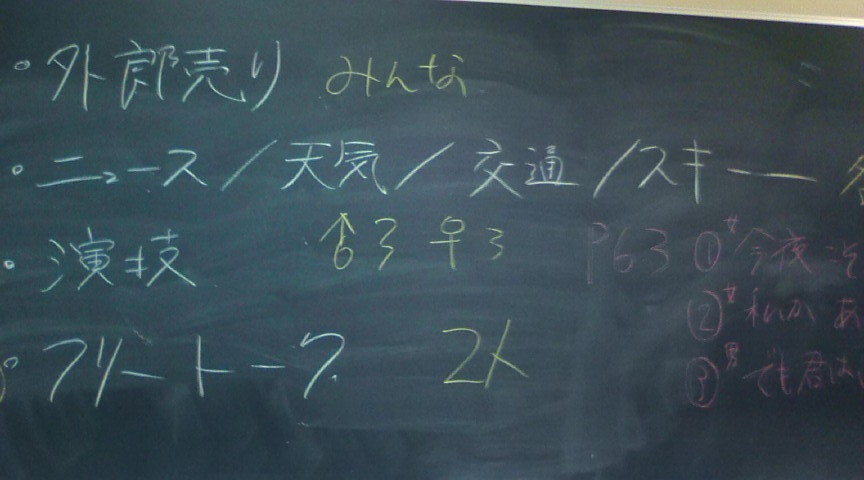 ・外郎売り みんな
・ニュース／天気／交通／スキー
・演技 ♂3 ♀3 P63 ①女 今夜
②女 私が あ
・フリートーク 2人 ③男 でも君は